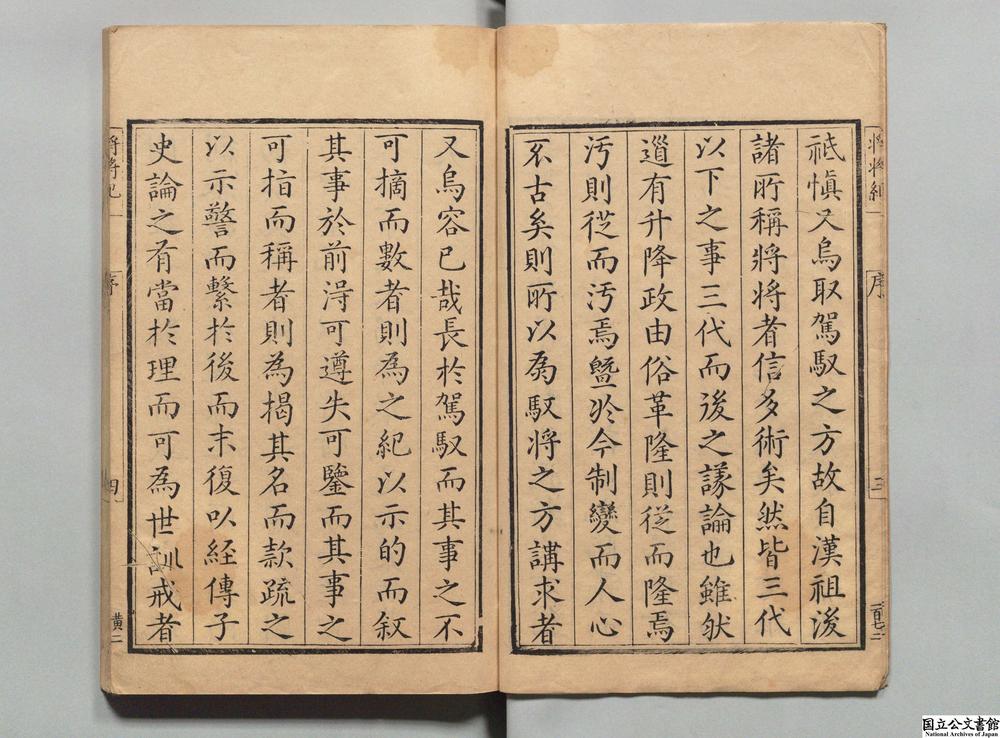 祗慎又烏取駕馭之方故自漢祖後
諸所稱將將者信多術矣然皆三代
以下之事三代而後之議論也雖然
道有升降政由俗革隆則從而隆焉
汚則從而汚焉暨於今制變而人心
不古矣則所以為馭將之方講求者
又烏容已哉長於駕馭而其事之不
可摘而數者則為之紀以示的而叙
其事於前淂可遵失可鑒而其事之
可指而稱者則為揭其名而款疏之
以示警而繫於後而末復以経傳子
史論之有當於理而可為世訓戒者
將將紀
序
三
一百七二
將將紀
序
四
黄二
国立公文書館
National Archives of Japan